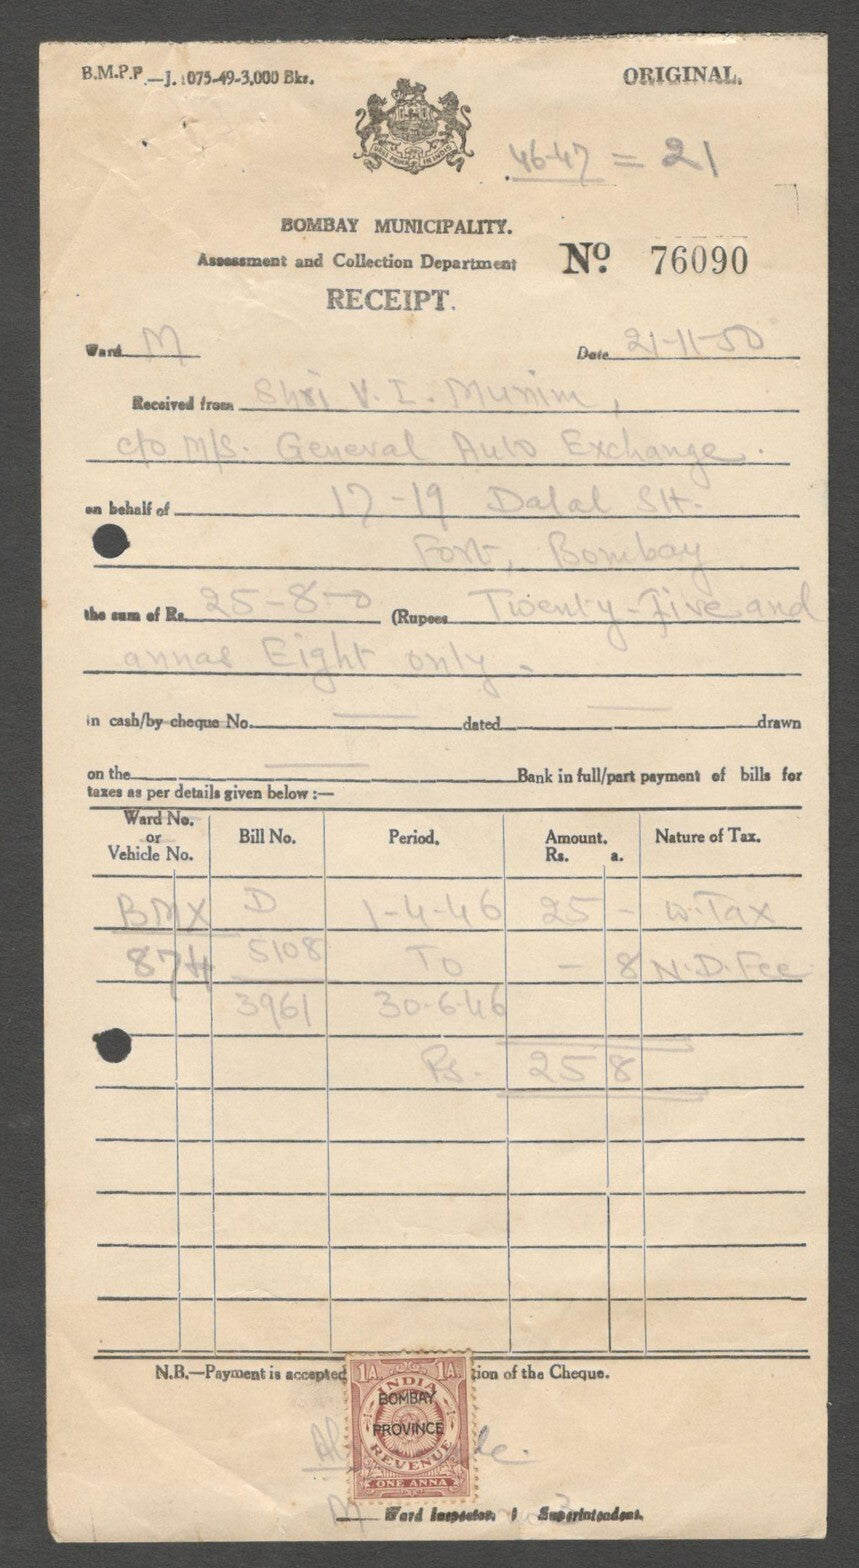 B.M.P.P.—J. 1075-49-3,000 Bks.
ORIGINAL.
URBS PRIMA IN INDIS
46-47 = 21
BOMBAY MUNICIPALITY.
Assessment and Collection Department
No. 76090
RECEIPT.
Ward M Date 21-11-50
Received from Shri V. I. Munim,
c/o M/s. General Auto Exchange.
on behalf of 17-19 Dalal Stt.
Fort, Bombay
the sum of Rs. 25-8-0 (Rupees Twenty-Five and
annas Eight only.
in cash/by cheque No. — dated — drawn
on the — Bank in full/part payment of bills for
taxes as per details given below :—
Ward No. or Vehicle No. Bill No. Period. Amount. Rs. a. Nature of Tax.
BMX D 1-4-46 25 - W. Tax
874 5108 To - 8 N.D. Fee
3961 30-6-46
Rs. 25 8
N.B.—Payment is accepted tion of the Cheque.
1A. 1A.
INDIA
BOMBAY
PROVINCE
REVENUE
ONE ANNA
Ward Inspector. Superintendent.